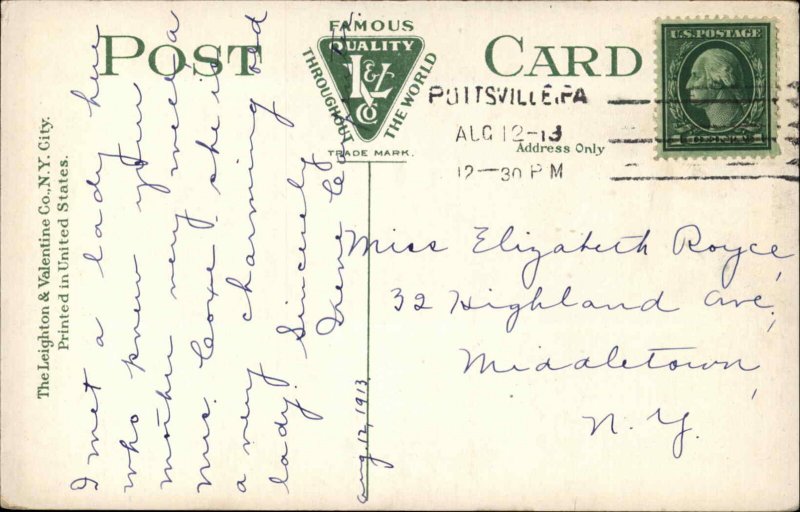 POST CARD
FAMOUS
QUALITY
THROUGHOUT THE WORLD
L&V
Co
TRADE MARK.
U.S. POSTAGE
POTTSVILLE, PA
AUG 12-13
12-30 PM
Address Only
Miss Elizabeth Royce,
32 Highland Ave,
Middletown,
N. Y.
I met a lady here
who knew your
mother very well, a
Mrs. Coxe - she is
a very charming old
lady. Sincerely
Irene
Aug. 12, 1913.
The Leighton & Valentine Co., N.Y. City.
Printed in United States.